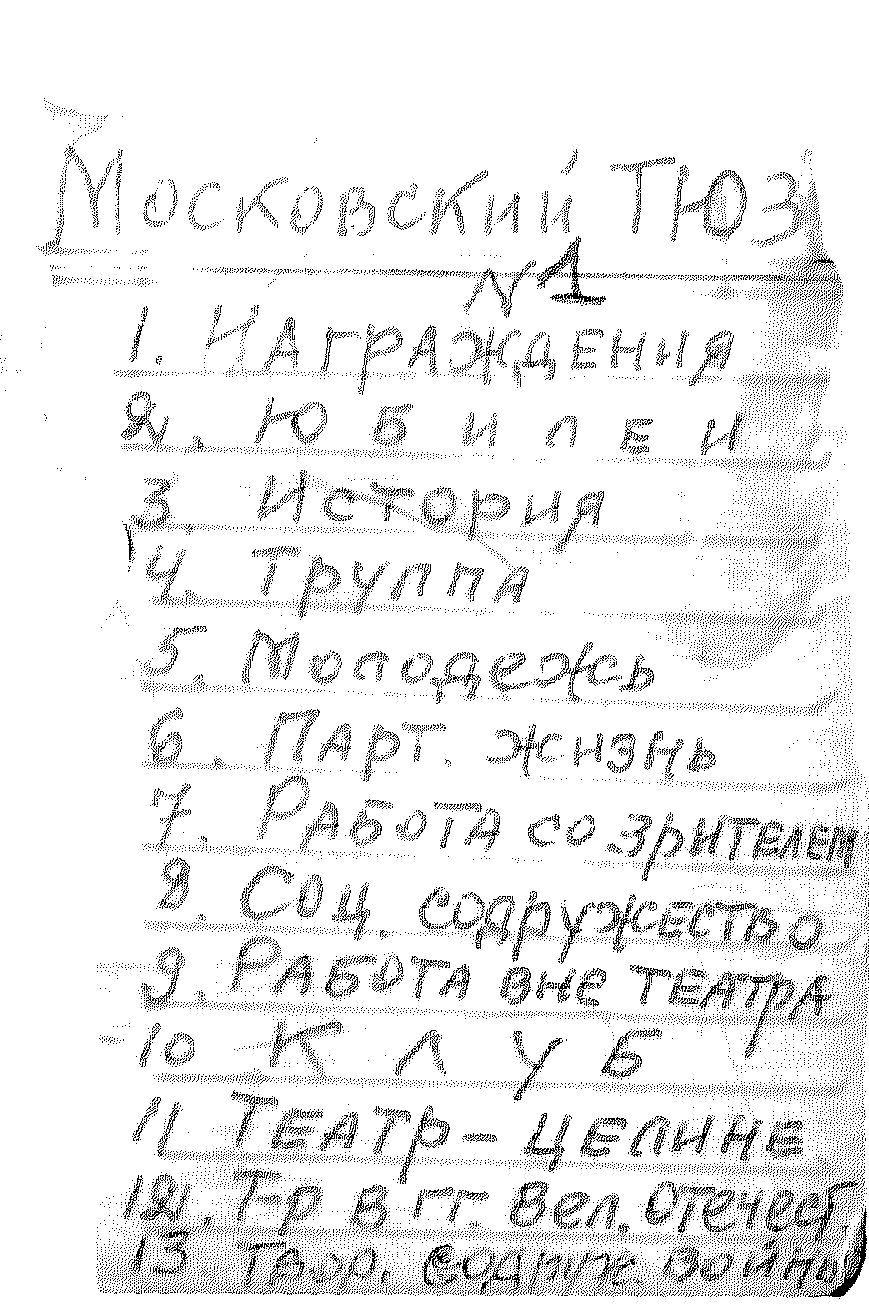 Московский ТЮЗ
N 1
1. НАГРАЖДЕНИЯ
2. ЮБИЛЕИ
3. История
4. Труппа
5. Молодежь
6. ПАРТ. жизнь
7. РАБОТА со зрителем
8. СОЦ. содружество
9. РАБОТА вне ТЕАТРА
10 КЛУБ
11 ТЕАТР - ЦЕЛИНЕ
12. Т-р в гг. Вел. Отечест.
13. Твор. содруж войны